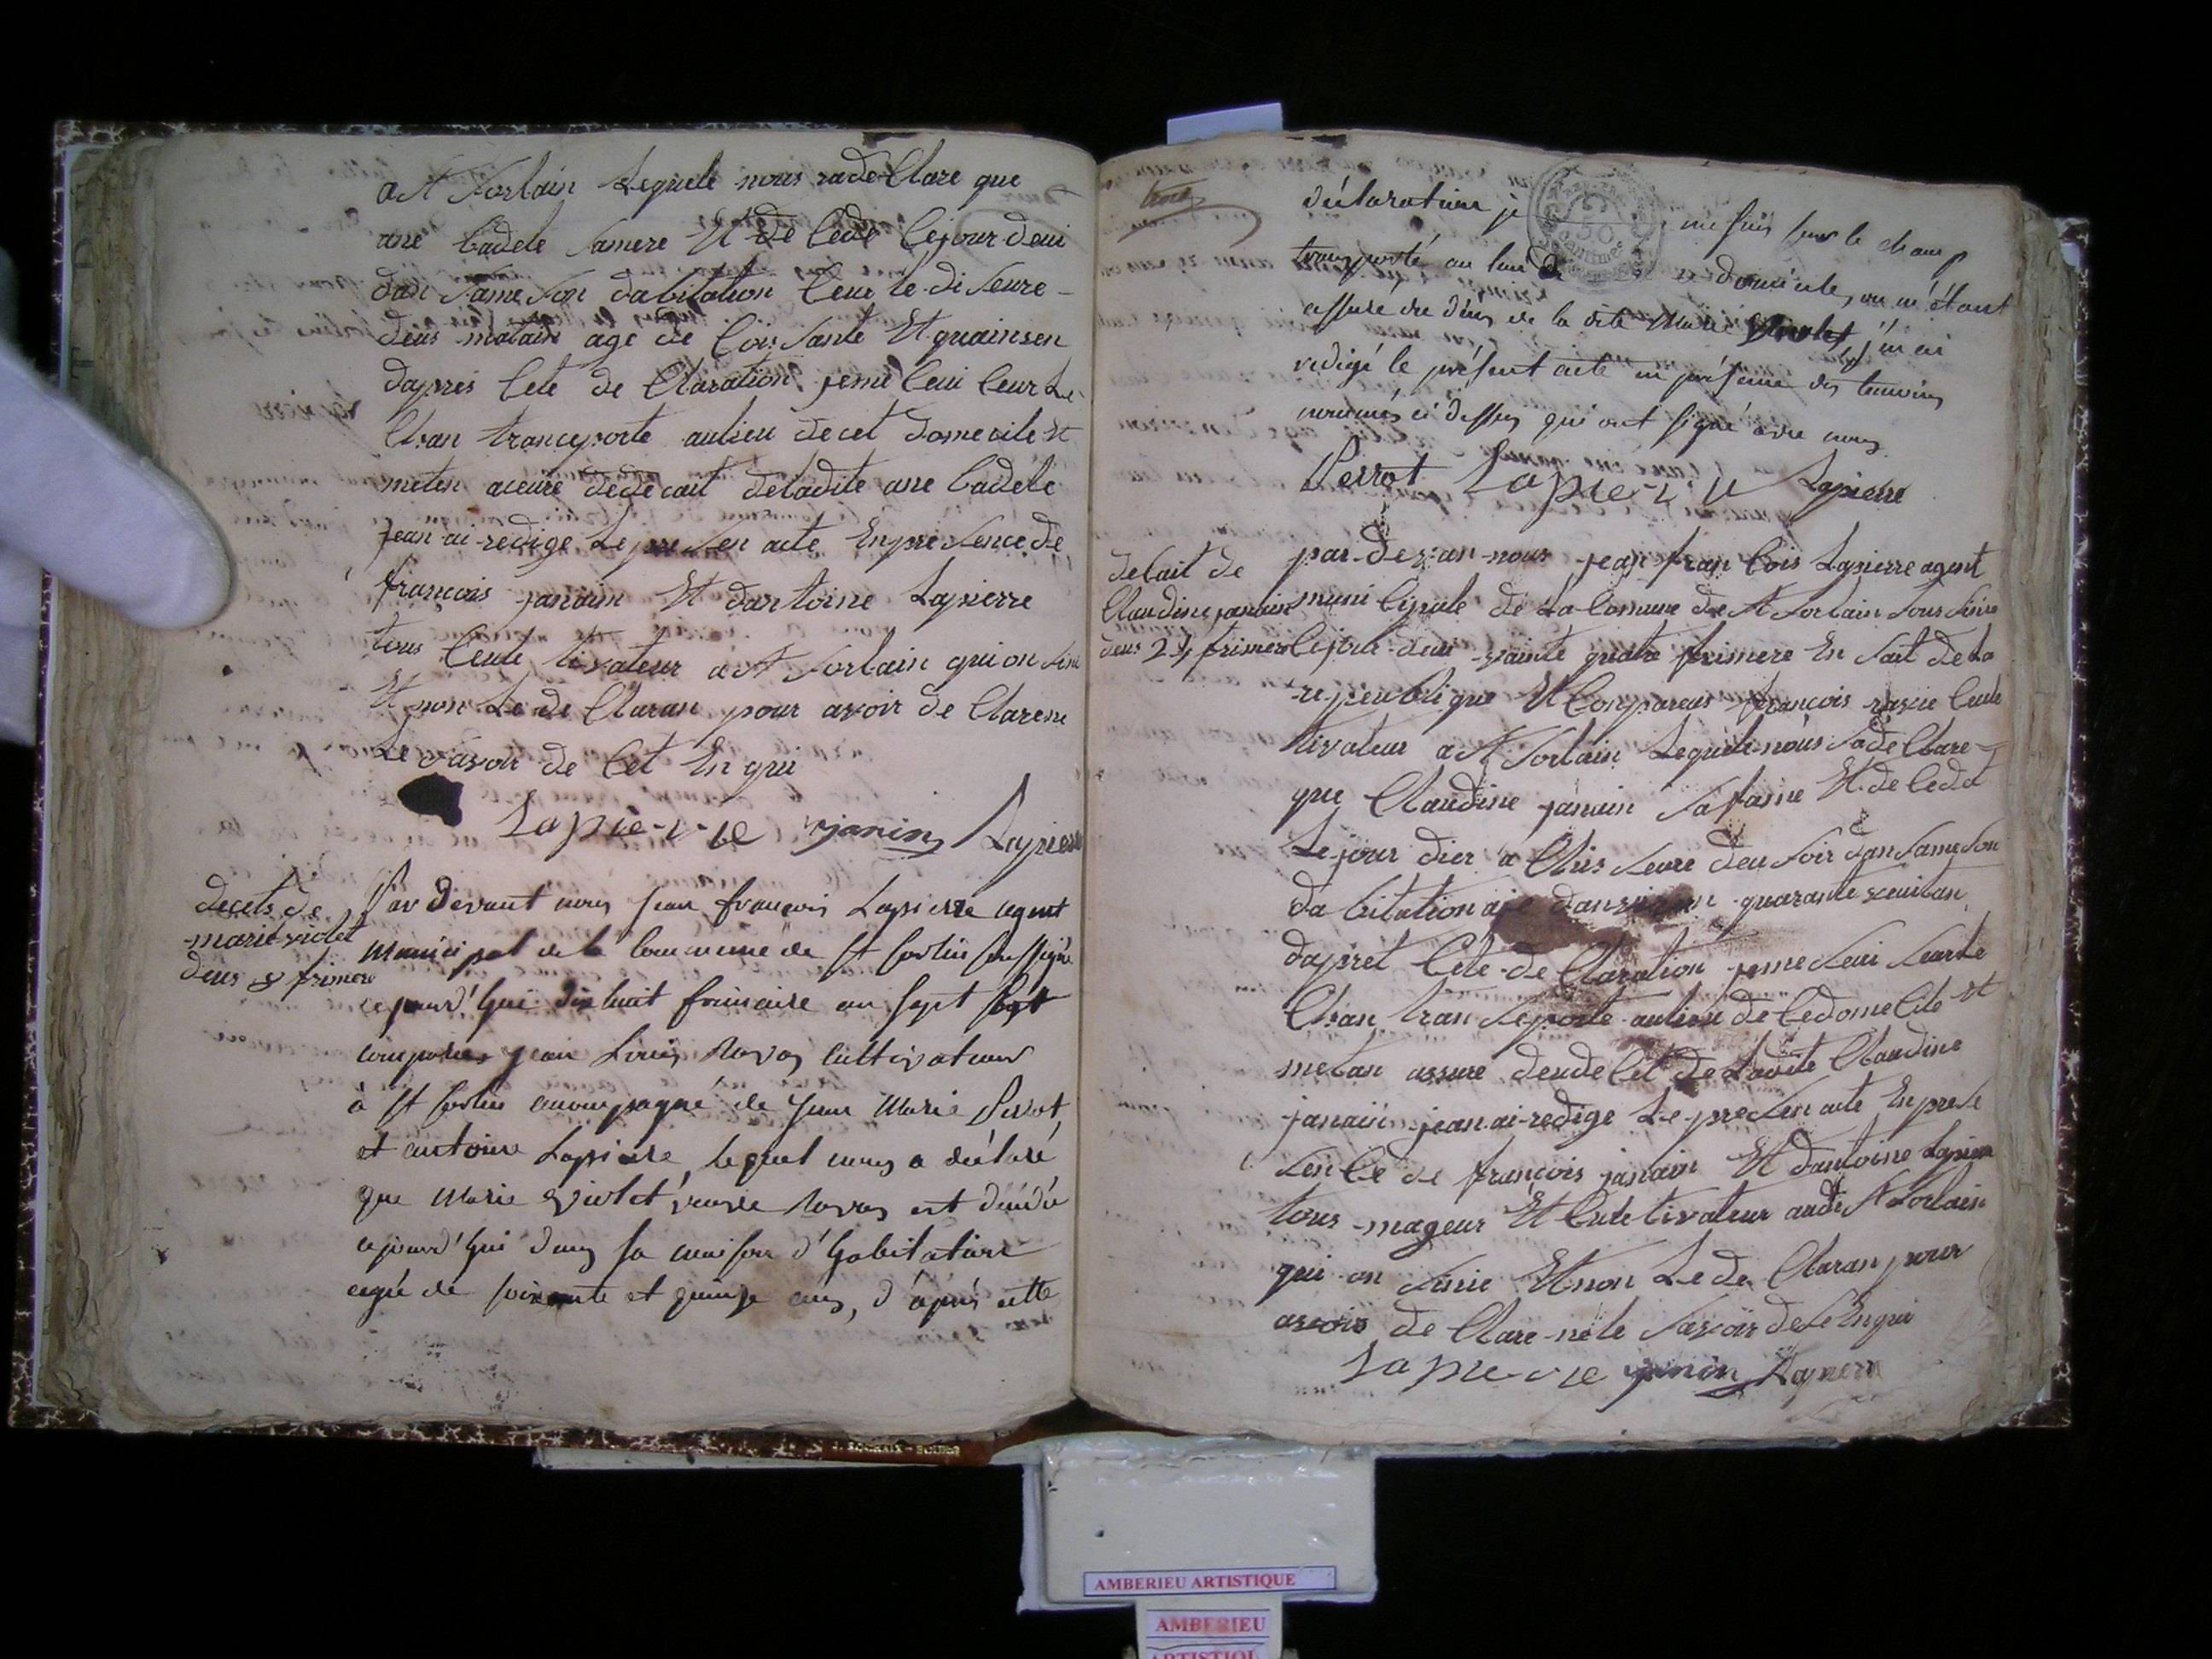 a St Sorlain Lequele nous rade Clare que
ane Cadele Samere Et de Cede Cejour deui
dan Same Son dabitation Ceur le di Seure
deus matain age de Coisante Et quainsen
dapres Cete de Claration jeme Cui Ceur Le
Chan trancporte aulieu decet domecile Et
meten aceure dedecait deladite ane Cadele
jean ai redige Le presen acte En presence de
françois janain Et dantoine Lapierre
tous Culte tivateur a St Sorlain qui on Sine
Et non Le de Claran pour avoir de Clarene
Le Savoir de Cet En qui
Lapierre janin Lapierre
decets de
marie violet
deus frimere
Par devant nous jean françois Lapierre agent
municipal de la Commune de St Sorlin soussigné
cejourd'hui dix huit frimaire an sept
comparu jean Louis Ravas cultivateur
à St Sorlin accompagné de jean Marie Perrot
et antoine Lapierre, lequel nous a déclaré
que Marie Violet veuve Ravas est décédé
cejourd'hui dans sa maison d'habitation
agé de soixante et quinze ans, d'après cette
déclaration je me suis sur le champ
transporté au lieu de domicile, ou m'étant
assuré du décès de la dite Marie Violet j'en ai
redigé le présent acte en présence des temoins
nommés ci dessus qui ont signé avec nous
Perrot Lapierre Lapierre
decait de
Claudine janain
deus 24 frimere
par devan nous jean fran Cois Lapierre agent
muni Cipale de La Comune de St Sorlain Sous Sinie
Cejour deui vainte quatre frimere En Sait de la
repeublique Et Compareus françois ravie Cule
tivateur a St Sorlain Lequele nous Sade Clare
que Claudine janain Sa faime Et de Ceda
Le jour dier a Chis Seure deu Soir dan Same Son
da bitation aje danviron quarante uitan
dapret Cete de Claration jeme Seui Seurle
Chan tran Seporte aulieu de Cedome Cile Et
metan assure deude Cet de Ladite Claudine
janain jean ai redige Le presen acte En prese
Sen Ce de françois janain Et dantoine Lapierre
tous mageur Et Cule tivateur audi St Sorlain
qui on Sinie Et non Le de Claran pour
avoir de Clare nele Savoir de Se Enqui
Lapierre janin Lapierre
AMBERIEU ARTISTIQUE
AMBERIEU
ARTISTIQUE